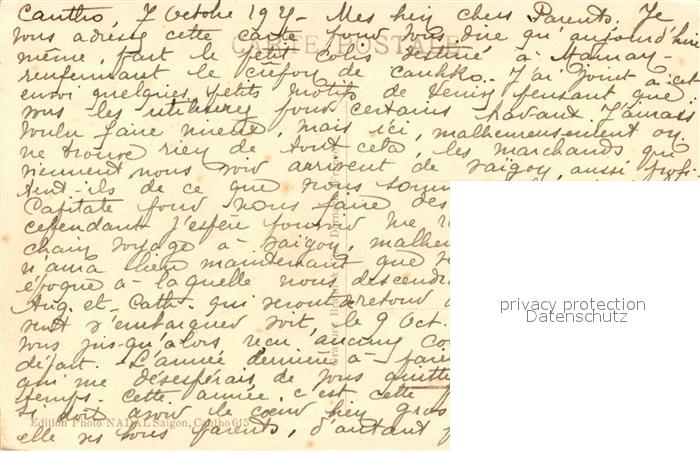 Cantho, 7 Octobre 19 - Mes bien chers Parents. Je
vous adresse cette carte pour vous dire qu'aujourd'hui
CARTE POSTALE
même, part le petit colis destiné à Maman -
renfermant le crépon de Canhko. J'ai joint à cet
envoi quelques petits motifs de pensant que
vous les utiliserez pour certains travaux. J'aurais
voulu faire mieux, mais ici, malheureusement on
ne trouve rien de tout cela, les marchands qui
viennent nous voir arrivent de Saïgon, aussi profi-
tent-ils de ce que nous som
Capitale pour nous faire des
cependant j'espère pouvoir me
chain voyage à Saïgon, malheu
n'aura lieu maintenant que
époque à laquelle nous descendr
Aug. et Cath. qui seront retour
vent s'embarquer soit, le 9 Oct.
vous jus-qu'alors reçu aucun co
départ. L'année dernière à
qui me désespérais, de vous quitte
temps. Cette année, c'est cette
si doit avoir le cœur bien gros
Edition Photo NADAL Saigon, Cantho 615
elle ses bons parents, d'autant
privacy protection
Datenschutz